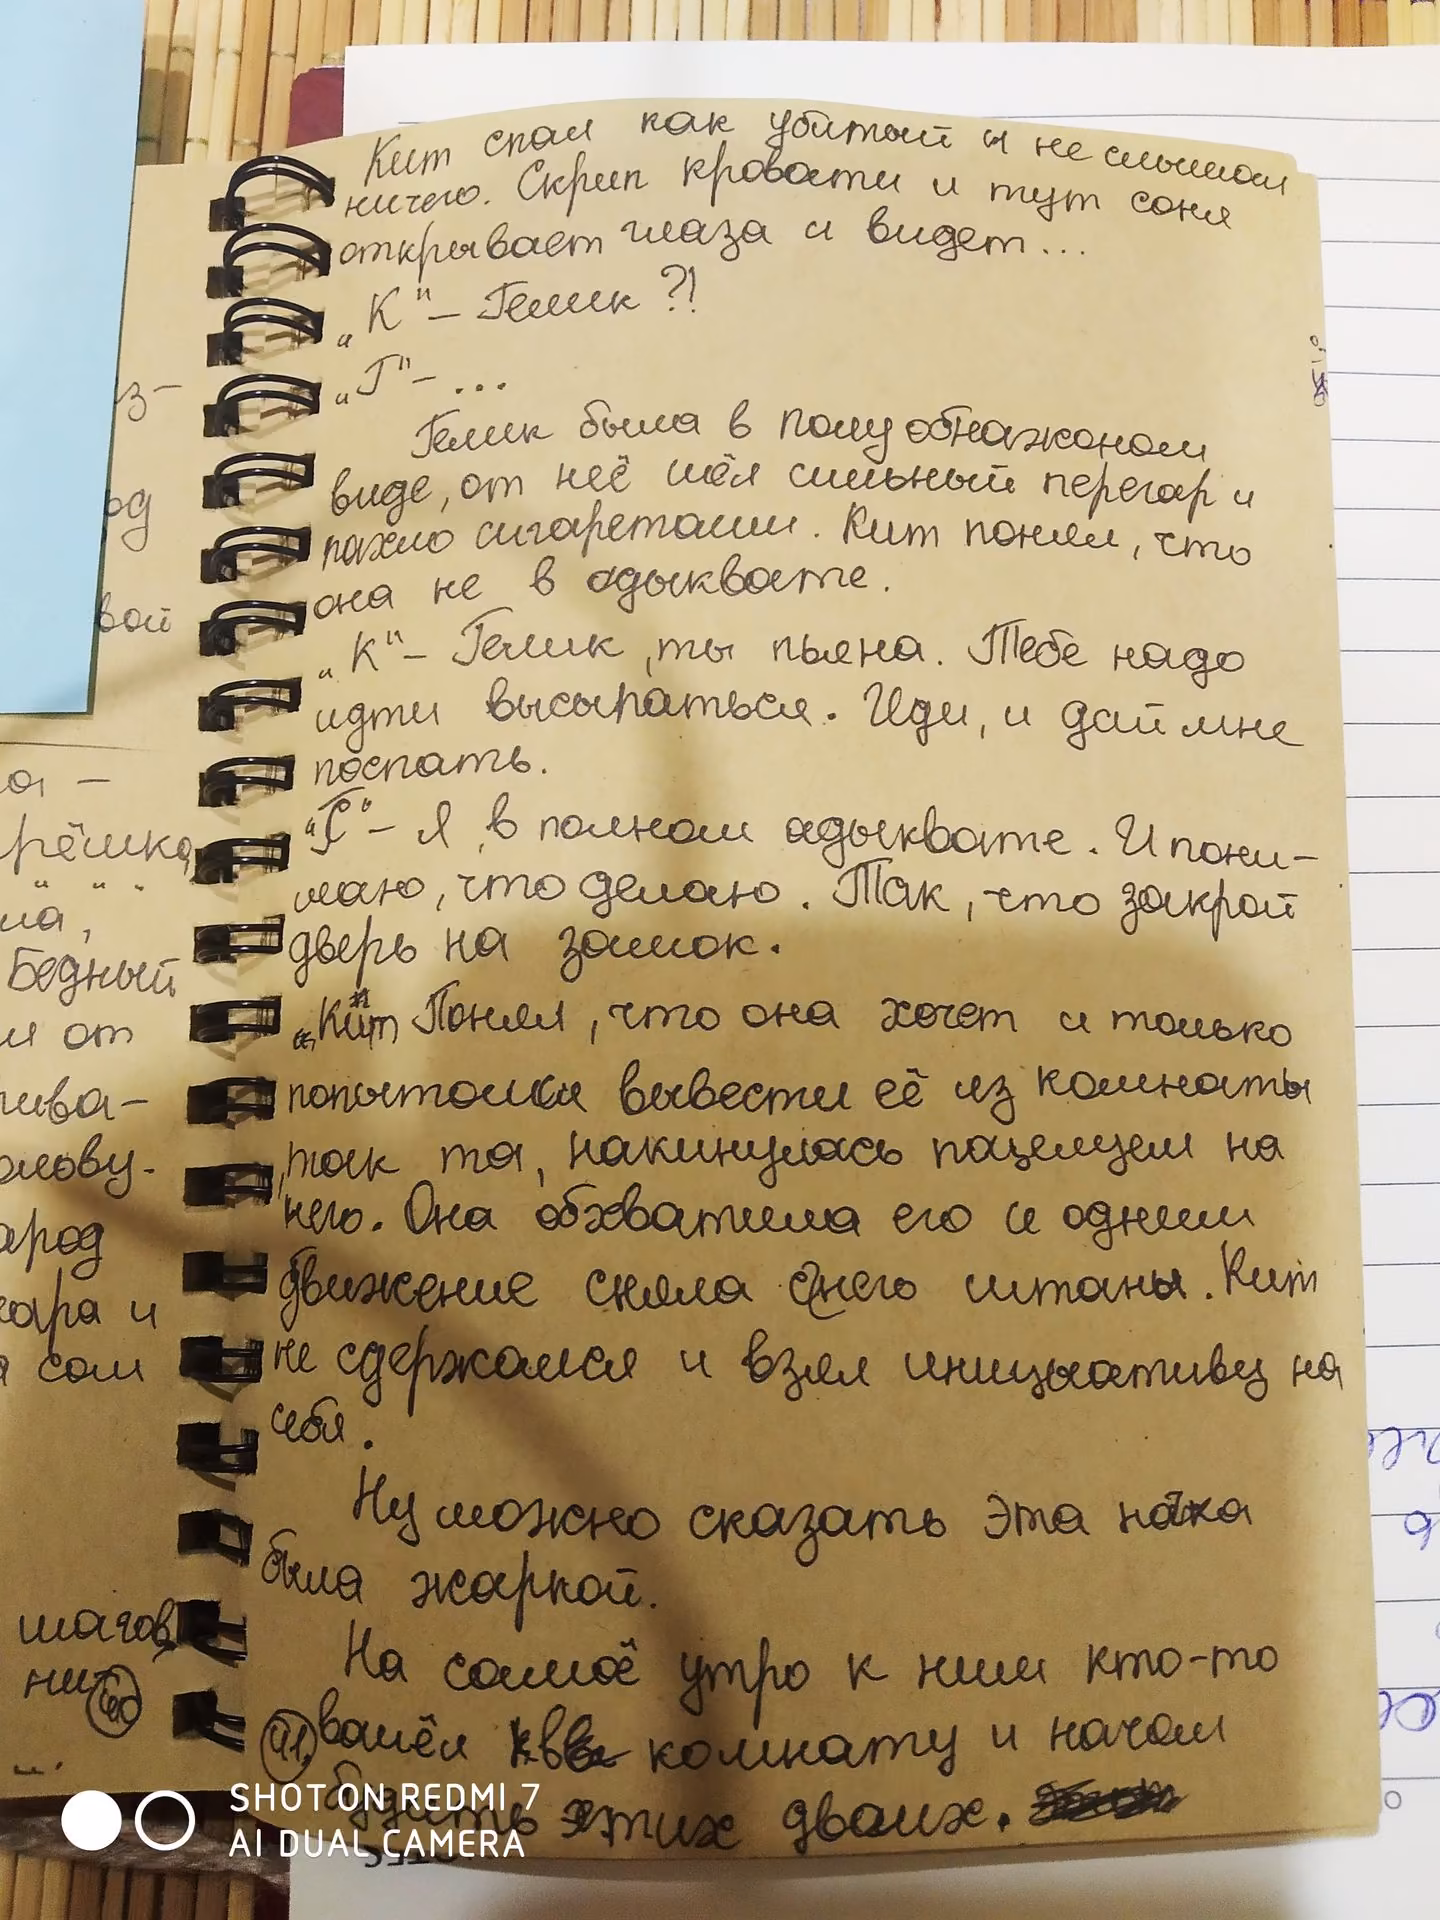 Кит спал как убитый и не слышал
ничего. Скрип кровати и тут соня
открывает глаза и видет...
„К"– Гелик ?!
„Г"– ...
Гелик была в полу обнажоном
виде, от неё шёл сильный перегар и
пахло сигаретами. Кит понял, что
она не в адыквате.
„К"– Гелик, ты пьяна. Тебе надо
идти высыпаться. Иди, и дай мне
поспать.
"Г"– Я в полном адыквате. И пони-
маю, что делаю. Так, что закрой
дверь на замок.
„Кит Понял, что она хочет и только
попытался вывести её из комнаты
, так та, накинулась поцелуем на
него. Она обхватила его и одним
движение сняла с него штаны. Кит
не сдержался и взял инициативу на
себя.
Ну можно сказать эта ночка
была жаркой.
На самоё утро к ним кто-то
41. вошёл в комнату и начал
будить этих двоих.
з–
од
вой
а –
рёшка,
" " "
ла,
Бедный
л от
лива–
олову.
арод
гара и
сам
шагов,
ни
40
SHOT ON REDMI 7
AI DUAL CAMERA